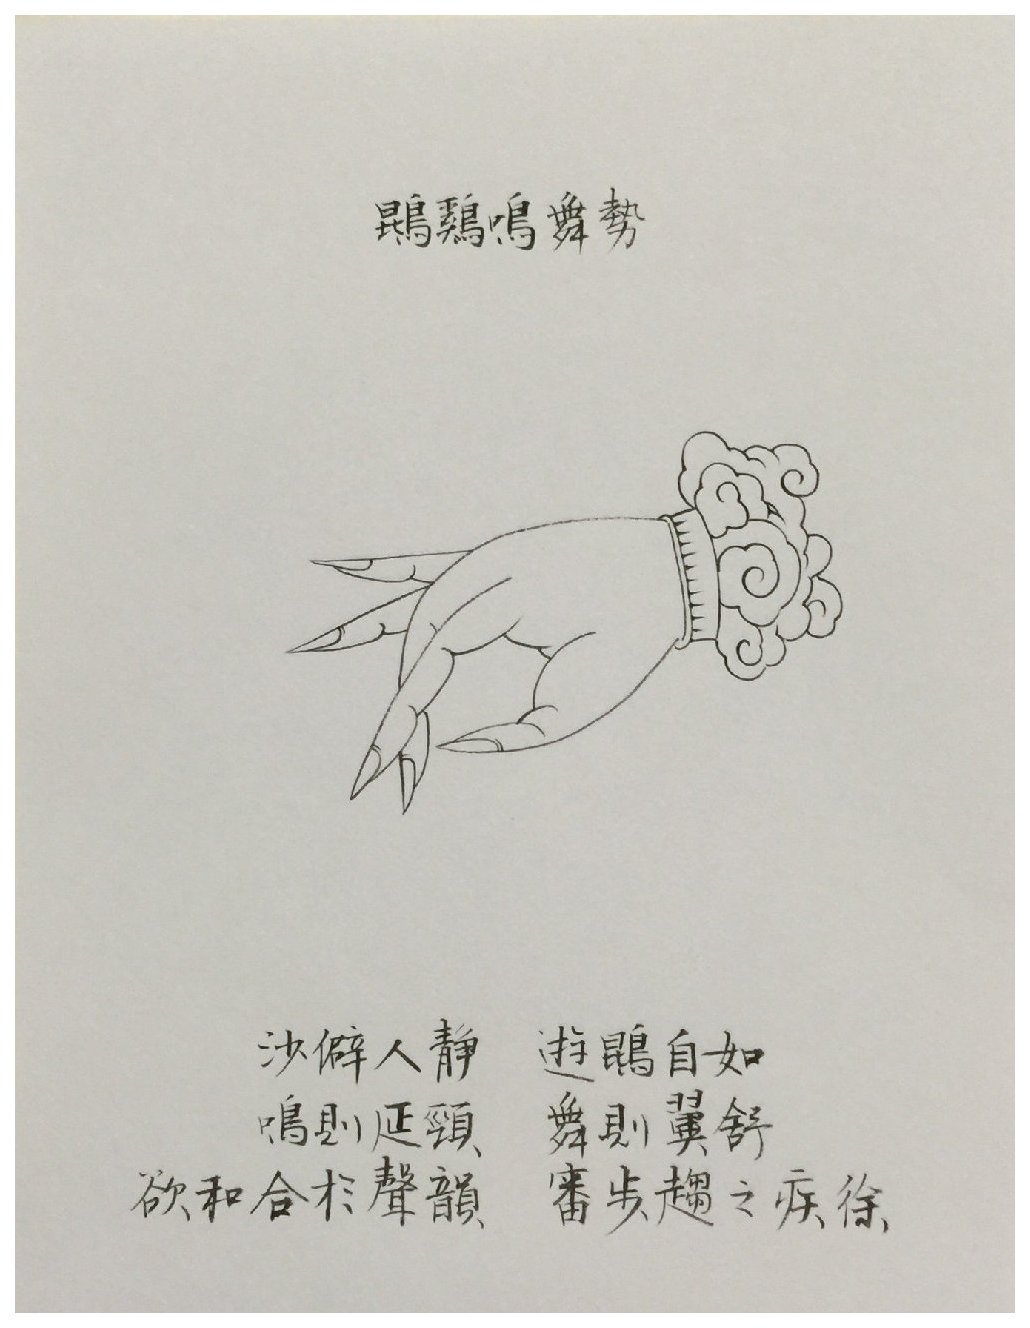 鵾鷄鳴舞勢
沙僻人靜　遊鵾自如
鳴則延頸　舞則翼舒
欲和合於聲韻　審步趨之疾徐